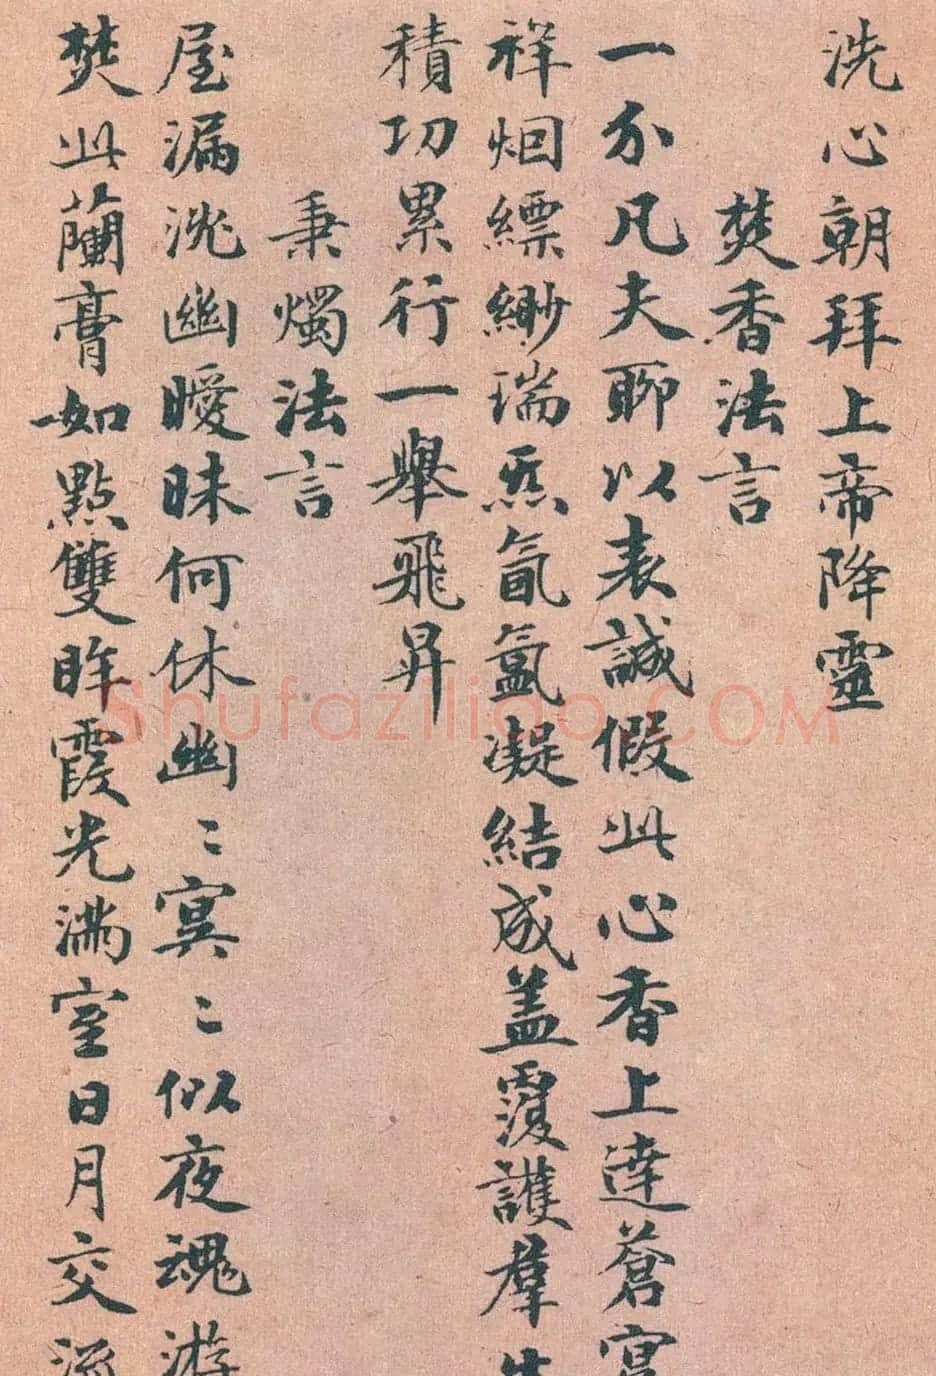 洗心朝拜上帝降靈
焚香法言
一分凡夫聊以表誠假此心香上達蒼
祥烟縹緲瑞炁氤氳凝結成盖覆護羣生
積功累行一舉飛昇
秉燭法言
屋漏洸幽曖昧何休幽〻寞〻似夜魂游
焚此蘭膏如點雙眸霞光滿室日月交流
Shufaziliao.COM